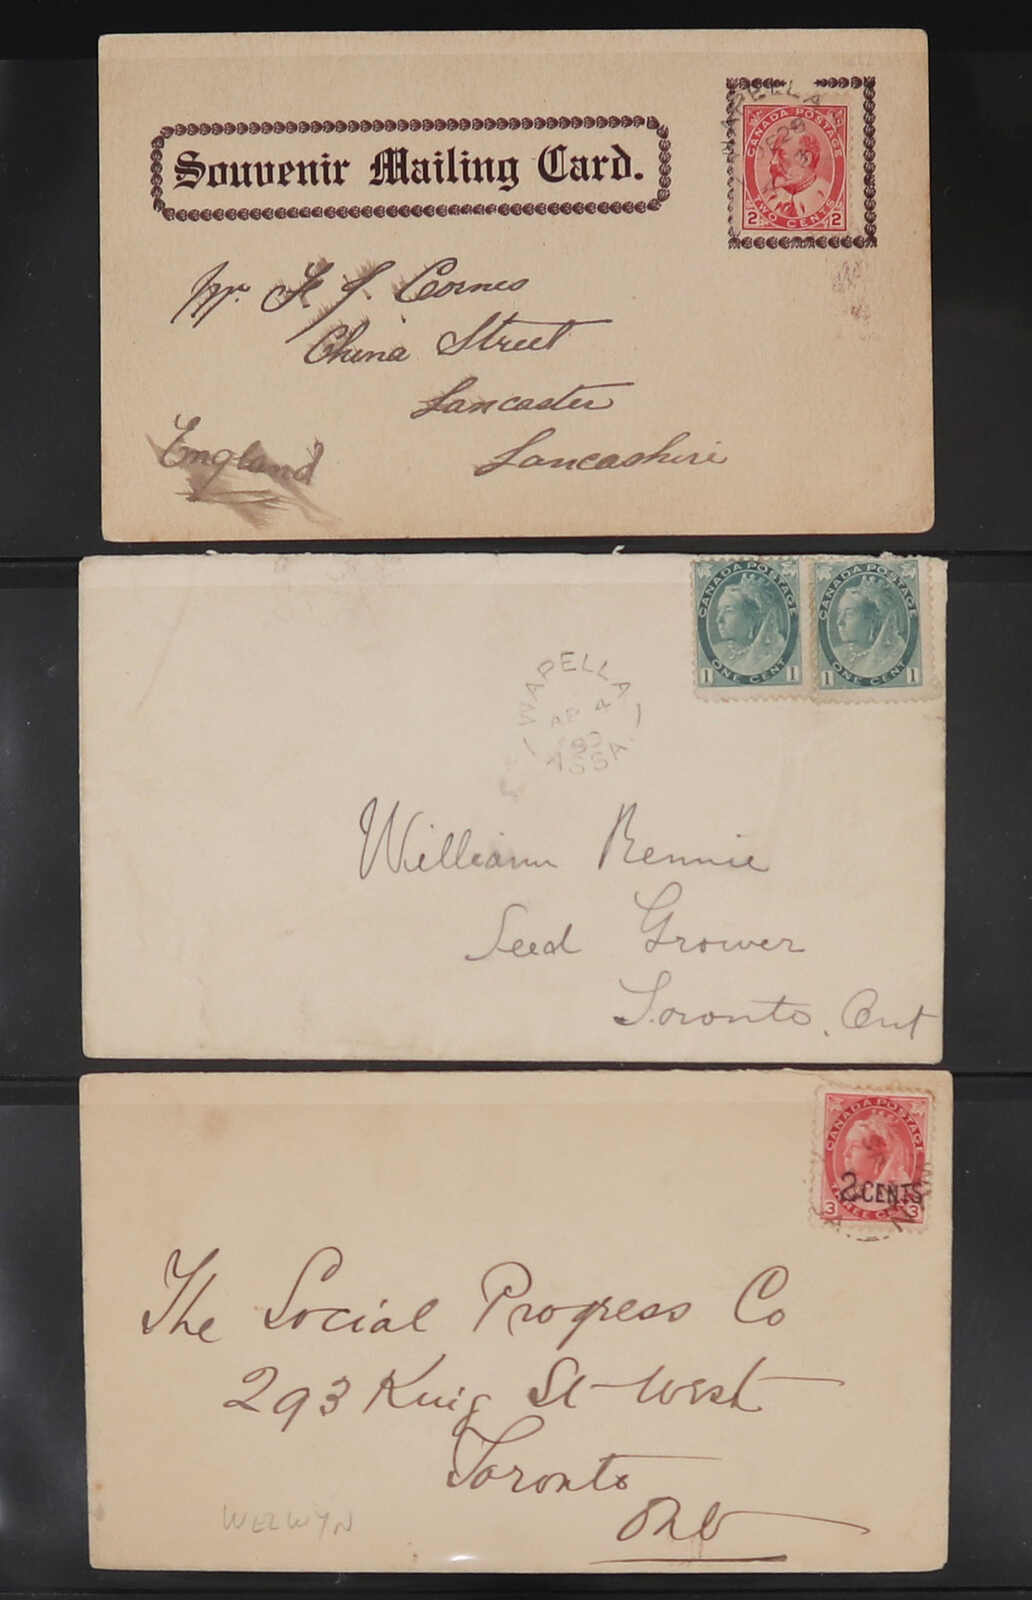 Souvenir Mailing Card.
WAPELLA
28
CANADA POSTAGE
2 TWO CENTS 2
Mr. F J. Cornes
China Street
Lancaster
Lancashire
England
CANADA POSTAGE
1 ONE CENT 1
CANADA POSTAGE
1 ONE CENT 1
WAPELLA
AP 4
ASSA.
William Rennie
Seed Grower
Toronto, Ont
CANADA POSTAGE
2 CENTS
3 THREE CENTS 3
The Social Progress Co
293 King St West
Toronto
Ont
WELWYN